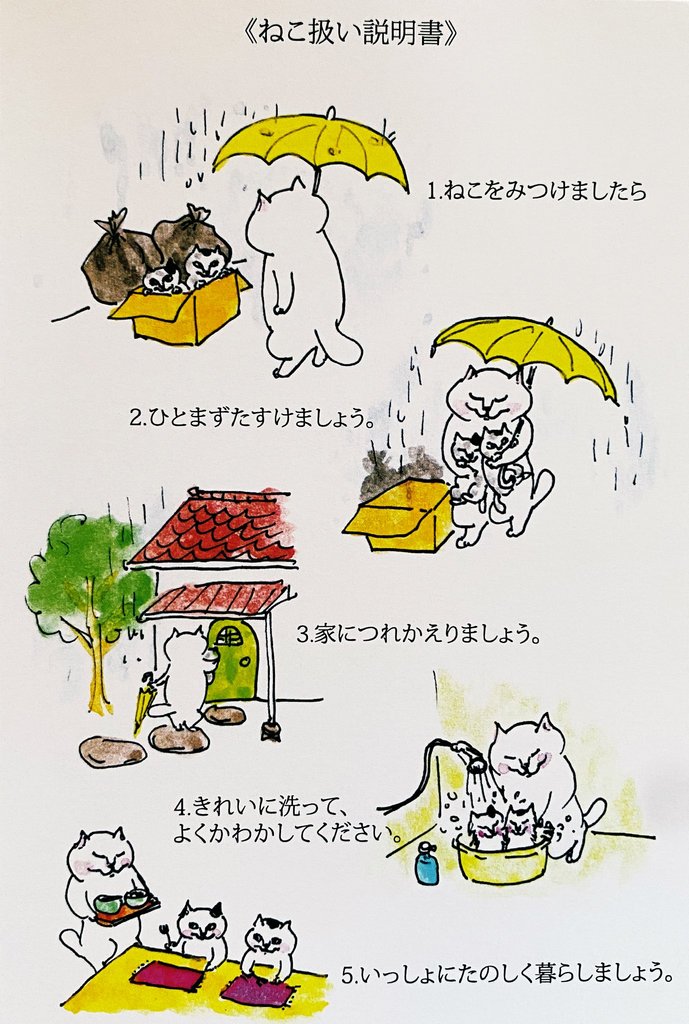 《ねこ扱い説明書》
1.ねこをみつけましたら
2.ひとまずたすけましょう。
3.家につれかえりましょう。
4.きれいに洗って、
よくかわかしてください。
5.いっしょにたのしく暮らしましょう。